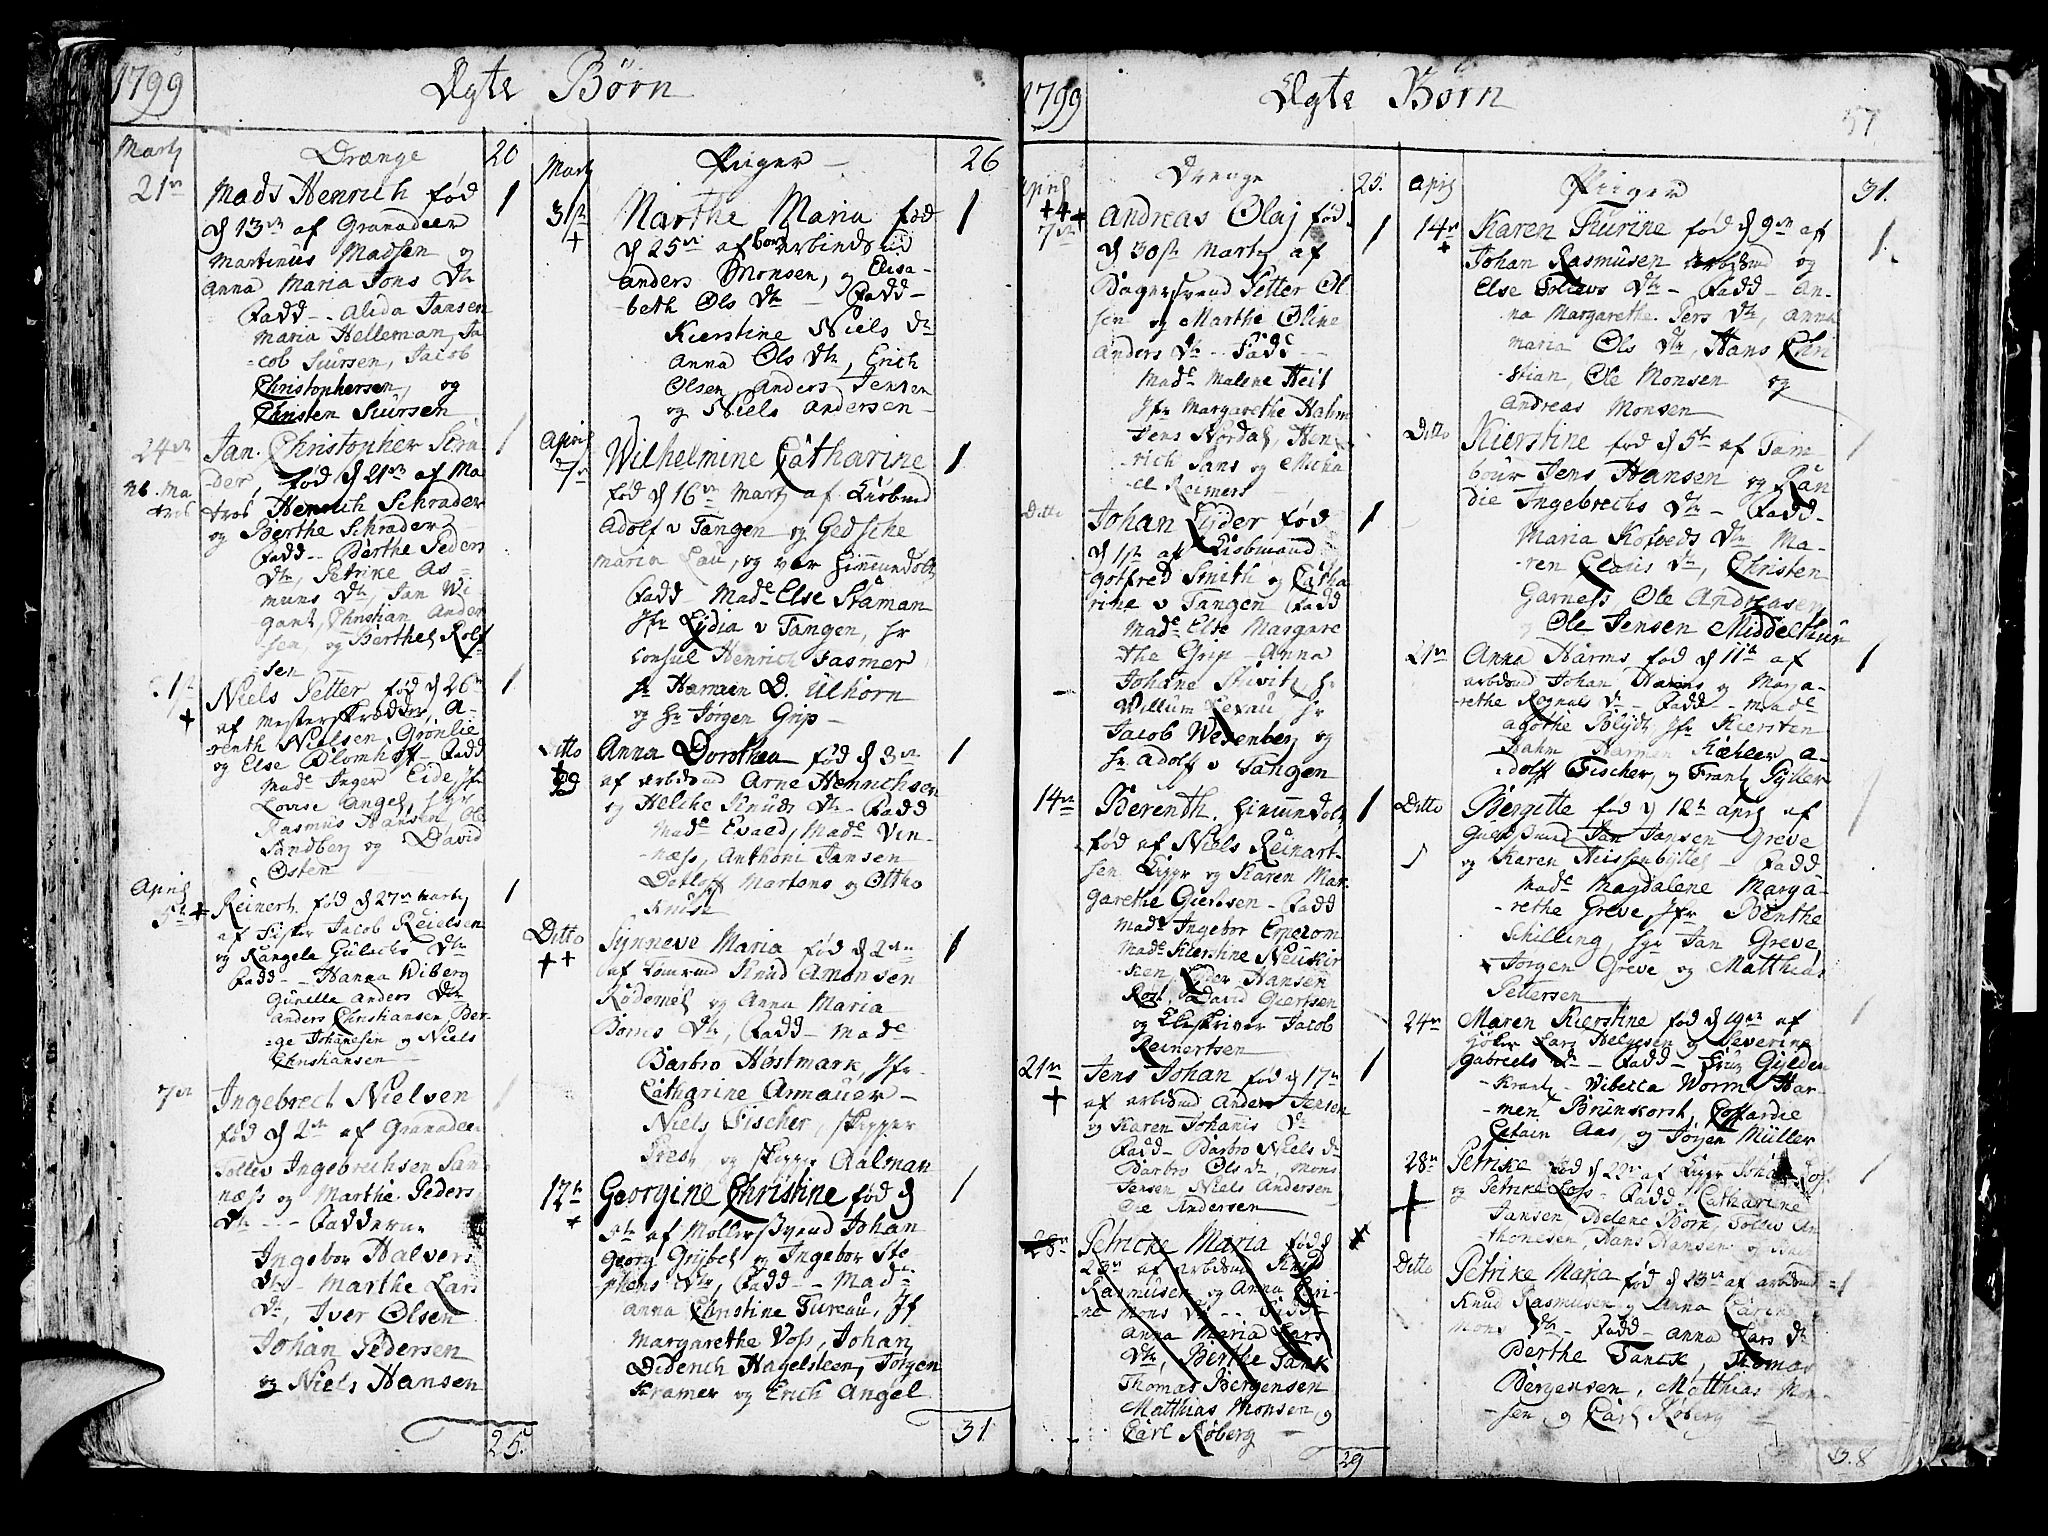 1799
Ægte Børn
Martz
Drænge
20
21de
Mads Henrich fød
1
d 13de af Granadeer
Martinus Madsen og
Anna Maria Jons Dtr
Fadd - Alida Jansen
Maria Helleman, Ja
-cob Siursen, Jacob
Christophersen, og
Christen Siursen
24de
Jan Christopher Schra
1
-der, fød d 21de af Ma
NB. Ma
tros
tros Henrich Schrader
og Berthe Schrader
Fadd - Berthe Peders
Dtr, Petrike As=
muns Dtr, Jan Wi
gant, Christian Ander
-sen, og Berthel Rolf
sen
31te
Niels Petter fød d 26de
1
+
af Mesterskrædder, A-
renth Nielsen Grønlie
og Else Blomhoff - Fadd
Made Inger Eide, Jfr
Lovise Angel, Hr
Rasmus Hansen, Ole
Sandberg og David
Østen
April
5te +
Reinert fød d 27de Martz
1
af Fisker Jacob Reielsen
og Rangela Gulachs Dtr
Fadd - Hanna Wiberg
Gunille Anders Dtr
Anders Christiansen Ber-
-ge Johanesen og Niels
Christiansen
7de
Ingebrect Nielsen
1
fød d 2de af Granadeer
Tollev Ingebrechtsen San
næss og Marthe Peders
Dtr - - Fadderne
Ingebor Halvers
Dtr - Marthe Lars
Dtr, Iver Olsen
Johan Pedersen
og Niels Hansen
25.
Martz
Piiger
26
31te
+
Marthe Maria fød
1
d 25de af borr arbindsud
Anders Monsen, og Elisa-
beth Ols Dtr - Fadd -
Kierstine Niels Dtr
Anna Ols Dtr, Erich
Olsen, Anders Jensen
og Niels Andersen
April
7de
Wilhelmine Catharine
1
fød d 16de Martz af Kiøbmd
Adolf v Tangen og Gedsche
Maria Lau, og var hiemmedøbt
Fadd - Made Else Staman
Jfr Lydia v Tangen, Hr
Consul Henrich Fasmer
Hr Harmen D. Ulhorn
og Hr Jørgen Grip -
Ditto
+
Anna Dorothea fød d 3de
1
af arbdsud Arne Henrichsen
og Helche Knuds Dtr - Fadd
Made Evald, Made Vin-
næss, Anthoni Jansen
Detloff Martens og Ottho
Knust
Ditto
+ +
Synneve Maria fød d 2den
1
af Tømrmd Knud Amonsen
Rødemel og Anna Maria
Børns Dtr, Fadd - Made
Barbro Hostmark, Jfr
Catharine Annauer -
Niels Fischer, Skipper
og Skipper Aalman
12te
+
Georgine Christine fød d
1
5te af Møllersvend Johan
Georg Grybel og Ingebor Ste
phens Dtr, Fadd - Made
Anna Christine Fureau, Jf
Margarethe Voss, Johan
Diderich Hagelsteen, Jørgen
Kramer og Erich Angel
31
1799
Ægte Børn
57
April
Drenge
25.
+4+
7de
Andreas Olaj fød
1
d 30te Martz af
Bagersvend Petter Ol
sen og Marthe Oline
Anders Dtr - Fadd -
Made Malene Heit
Jfr Margarethe Hahn
Jens Nordal, Hen
rich Jans og Micha
-el Reimers
Ditto
Johan Lyder fød
1
d 1te af Kiøbmand
Gotfred Smith og Catha
rine v Tangen Fadd
Made Else Margare
the Grip - Anna
Johane Stivit, Hr
Willum Lexau Hr
Jacob Wesenberg og
Hr Adolf v Tangen
14de
Berenth hiemmedøbt
1
fød af Niels Reinart-
sen Ligger og Karen Mar
garethe Giertsen - Fadd
Made Ingebor Erecrom
Made Kierstine Neukir
ken, Lyder Hansen
Rost, David Giertsen
og Klskriver Jacob
Reinertsen
21de
+
Jens Johan fød d 17de
1
af arbdsud Anders Jensen
og Karen Johanis Dtr
Fadd - Barbro Niels Dtr
Barbro Ols Dtr, Mons
Jensen Niels Andersen
Ole Andersen
28de
Petricke Maria fød d
23de af arbdsud Knud
Rasmusen og Anna Cari-
ne Mons Dtr - - Fadd -
Anna Maria Lars
Dtr, Berthe Tank
Thomas Bergensen
Matthias Monsen, og
Carl Røberg
29
April
Piiger
31.
14de
+
Karen Siurine fød d 9de af
1.
Johan Rasmusen arbdsud og
Else Tollevs Dtr - Fadd - An-
na Margarethe Pers Dtr, Anna
Maria Ols Dtr, Hans Chri
-stian, Ole Monsen og
Andreas Monsen
Ditto
Kierstine fød d 5te af Tam-
1
bour Jens Hansen og Ran
die Ingebrechs Dtr - Fadd -
Maria Kofoeds Dtr Ma-
-ren Claus Dtr, Christen
Garness Ole Andreasen
Ole Jensen Middelthun
21de
Anna Harms fød d 11te af
1
arbdsud Johan Harms og Marga-
-rethe Rognals Dtr - Fadd - Made
Agothe Blydt Jfr Kiersten
Hahn Harmen Kæhler, A-
dolff Fischer, og Frantz Pyller
Ditto
Bergitte fød d 12te April af
1
Guldsmd Jan Jansen Greve
og Karen Hussenbyttel - Fadd
Made Magdalene Marga-
-rethe Greve, Jfr Benthe
Schilling, Hr Jan Greve
Jørgen Greve og Matthias
Pettersen
24de
Maren Kierstine fød d 19de af
1
Høker Lars Helgesen og Severine
Gabriels Dtr - Fadd - Frue Gylden
-krantz - Wibecca Worm Har
-men Brunkorst, Coffardie
Captain Aas, og Jørgen Müller
28de
+
Petrike fød d 22de af Ligger Johan Loss
1
og Petrike Loss - Fadd - Catharine
Jansen, Helene Børk, Tollev An
thonesen, Hans Hansen og
Ditto
Petrike Maria fød d 23de af arbdsud
1
Knud Rasmusen og Anna Carine
Mons Dtr - Fadd - Anna Lars Dtr
Berthe Tanck, Thomas
Bergensen, Matthias Mon-
-sen, og Carl Røberg
38